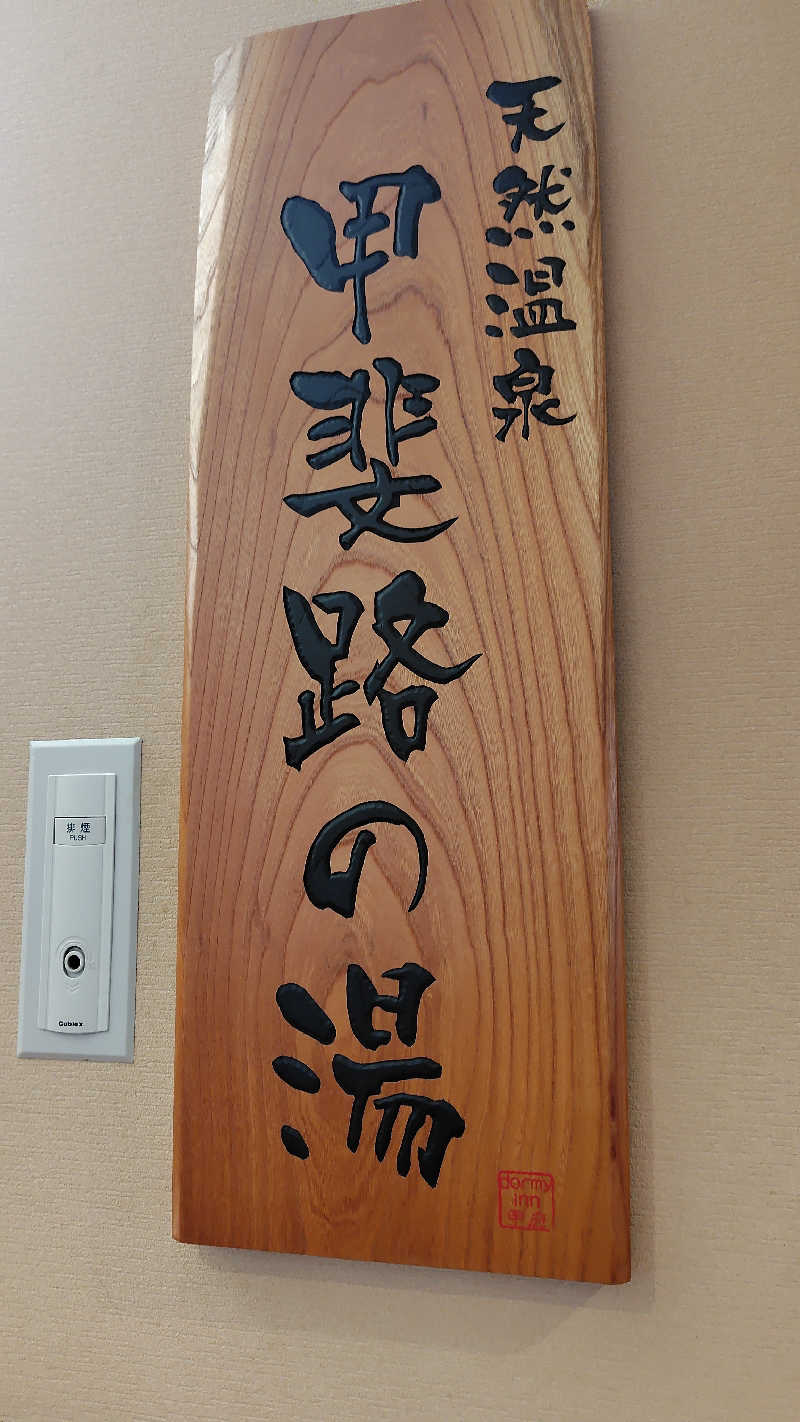 天然温泉
甲斐路の湯
dormy
inn
甲府
排煙
PUSH
Cublex